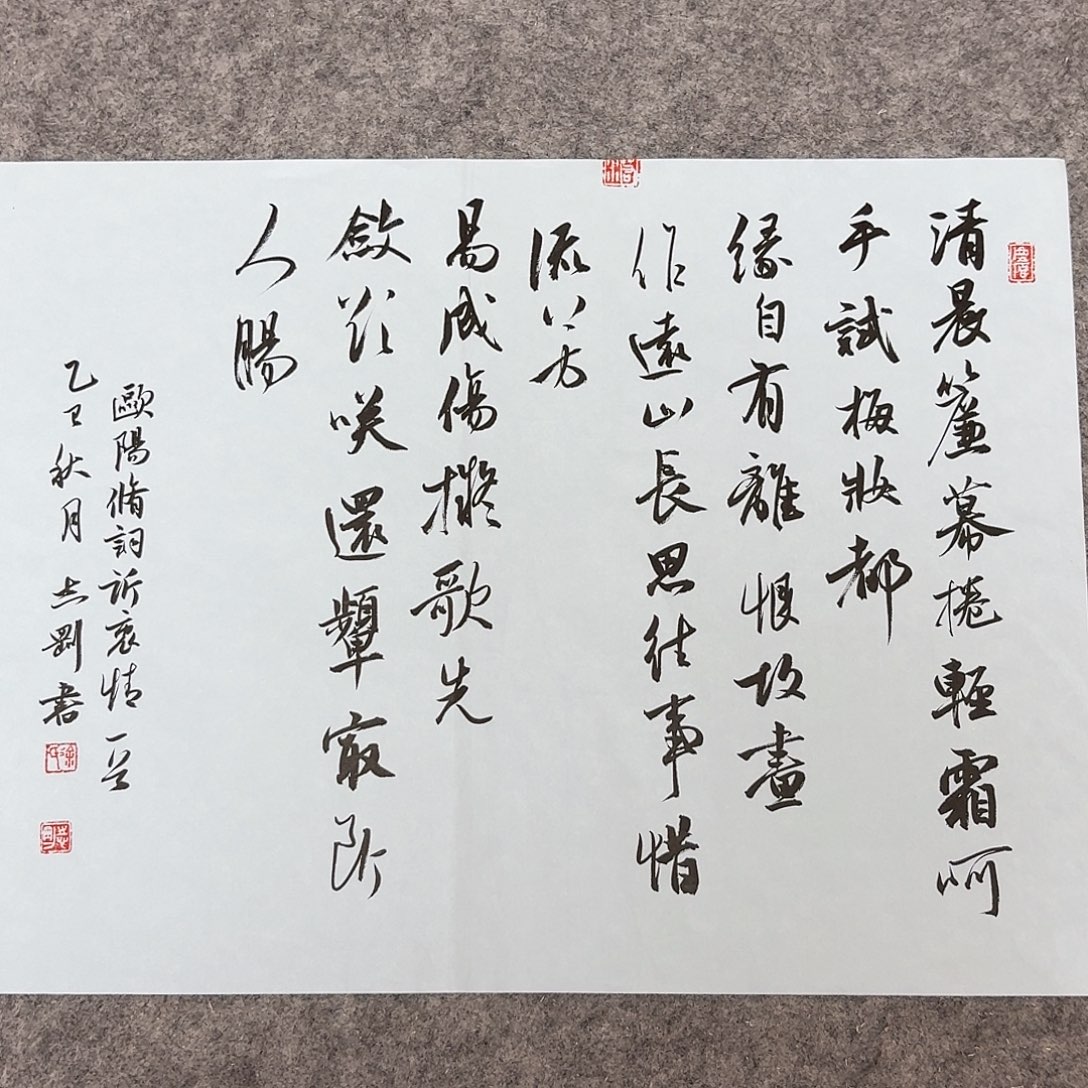 清晨簾幕捲輕霜呵
手試梅妝都
緣自有離恨故畫
作遠山長思往事惜
流芳
易成傷擬歌先
斂欲笑還顰最斷
人腸
歐陽脩詞訴衷情一首
乙巳秋月志剛書